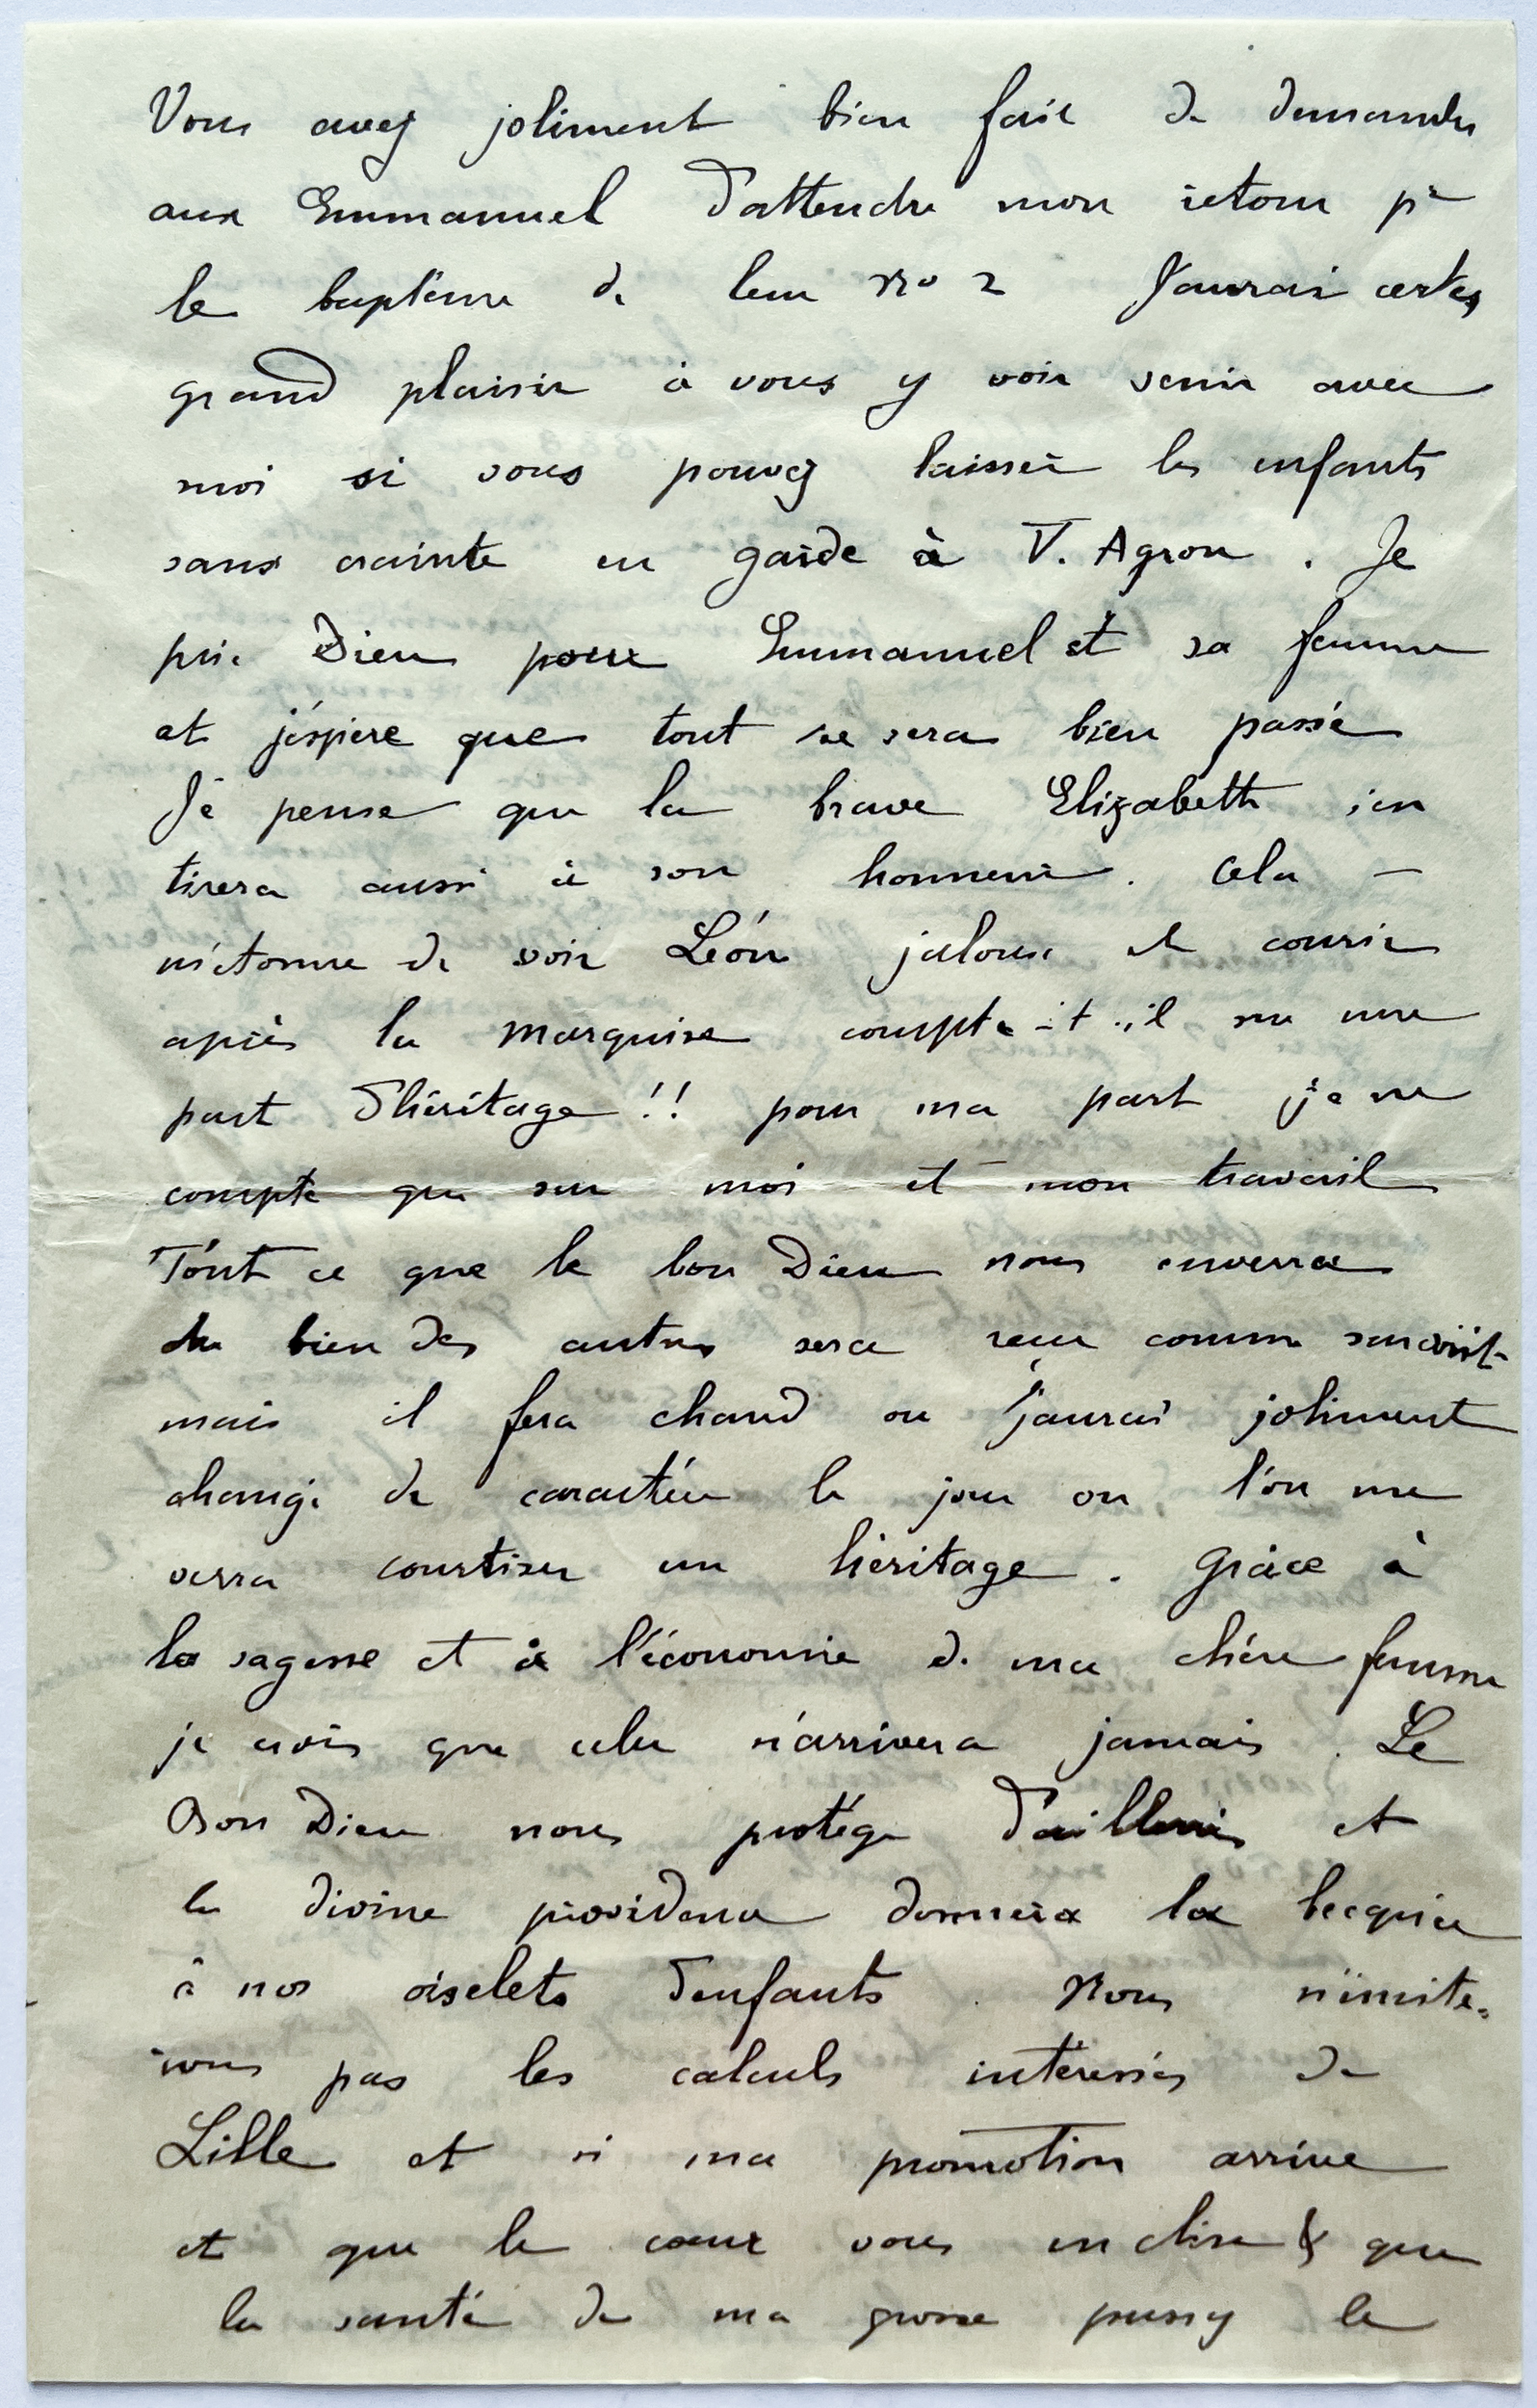 Vous avez joliment bien fait de demander
aux Emmanuel d'attendre mon retour pr
le baptême de leur no 2 J'aurai certes
grand plaisir à vous y voir venir avec
moi si vous pouvez laisser les enfants
sans crainte en garde à V. Agron . Je
prie Dieu pour Emmanuel et sa femme
et j'éspere que tout se sera bien passé
Je pense que la brave Elizabeth s'en
tirera aussi à son honneur. Cela
m'étonne de voir Léon jaloux et courir
après la marquise compte-t-il sur une
part d'héritage !! pour ma part je ne
compte que sur moi et mon travail
Tout ce que le bon Dieu nous enverra
du bien des autres sera reçu comme surcroît
mais il fera chaud ou j'aurai joliment
changé de caractère le jour ou l'on me
verra courtiser un héritage . Grâce à
la sagesse et à l'économie de ma chère femme
je crois que cela n'arrivera jamais . Le
Bon Dieu nous protège d'ailleurs et
la divine providence donnera la becquée
à nos oiselets d'enfants . Nous n'imite-
rons pas les calculs intéressés de
Lille et si ma promotion arrive
et que le cœur vous en dise & que
la santé de ma grosse pussy le